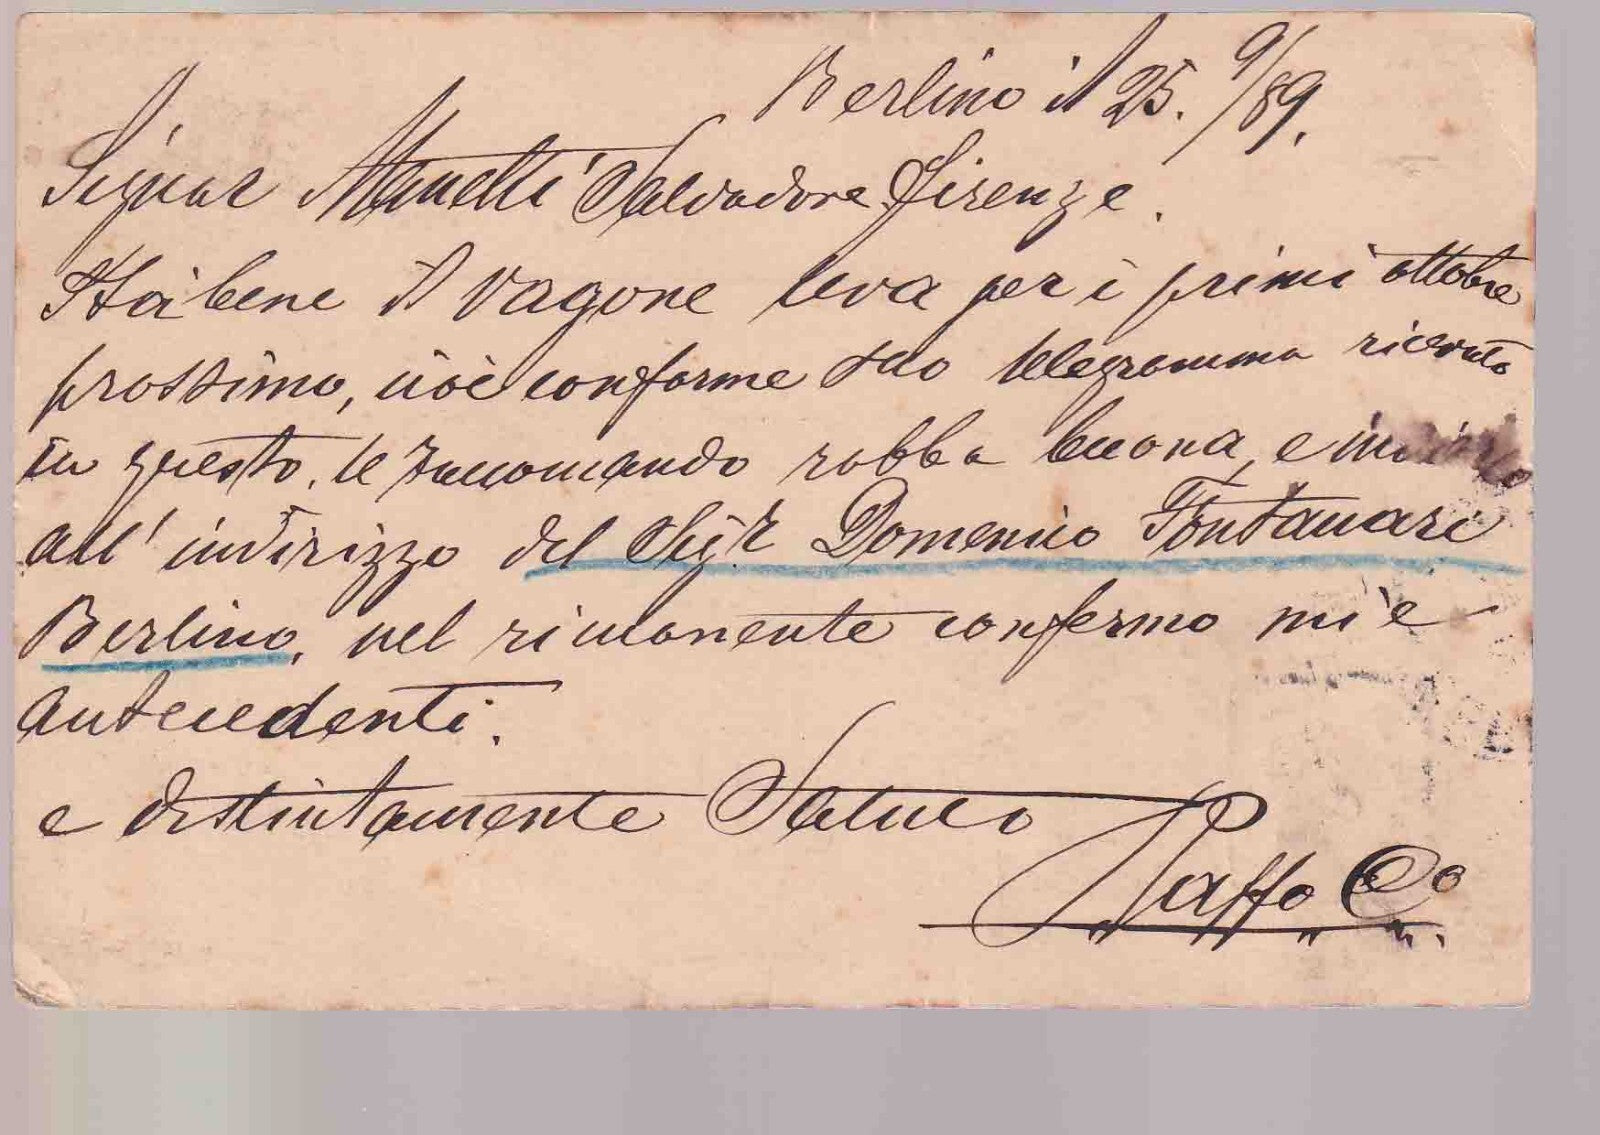 Berlino il 25. 9/89.
Signor Manetti Salvadore Firenze.
Sta bene il vagone leva per i primi ottobre
prossimo, cioè conforme suo telegramma ricevuto
in questo. le raccomando robba buona, e
all' indirizzo del Sigr. Domenico Fontanari
Berlino, nel rimanente confermo mi e
antecedenti.
e distintamente Saluto